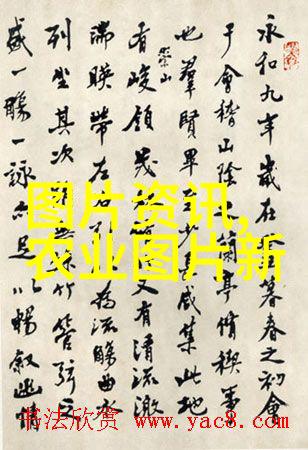 永和九年歲在暮春之初會
于會稽山陰亭脩稧事
也羣賢畢少長咸集此地
崇山
有峻領茂又有清流激
湍暎帶左右引為流觴曲水
列坐其次無竹管弦之
盛一觴一詠亦足以暢敘幽情
图片资讯,
农业图片新
书法欣赏 www.yac8.com